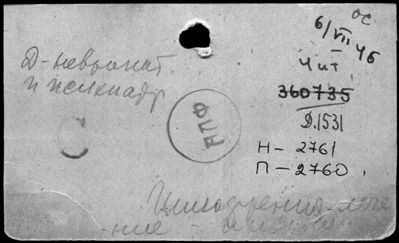 ос
6/VII 46
Чит
360735
Д.1531
Д-невропат.
и психиатр
НПФ
Н-2761
П-2760.
Шизофрения-лече
-ние -